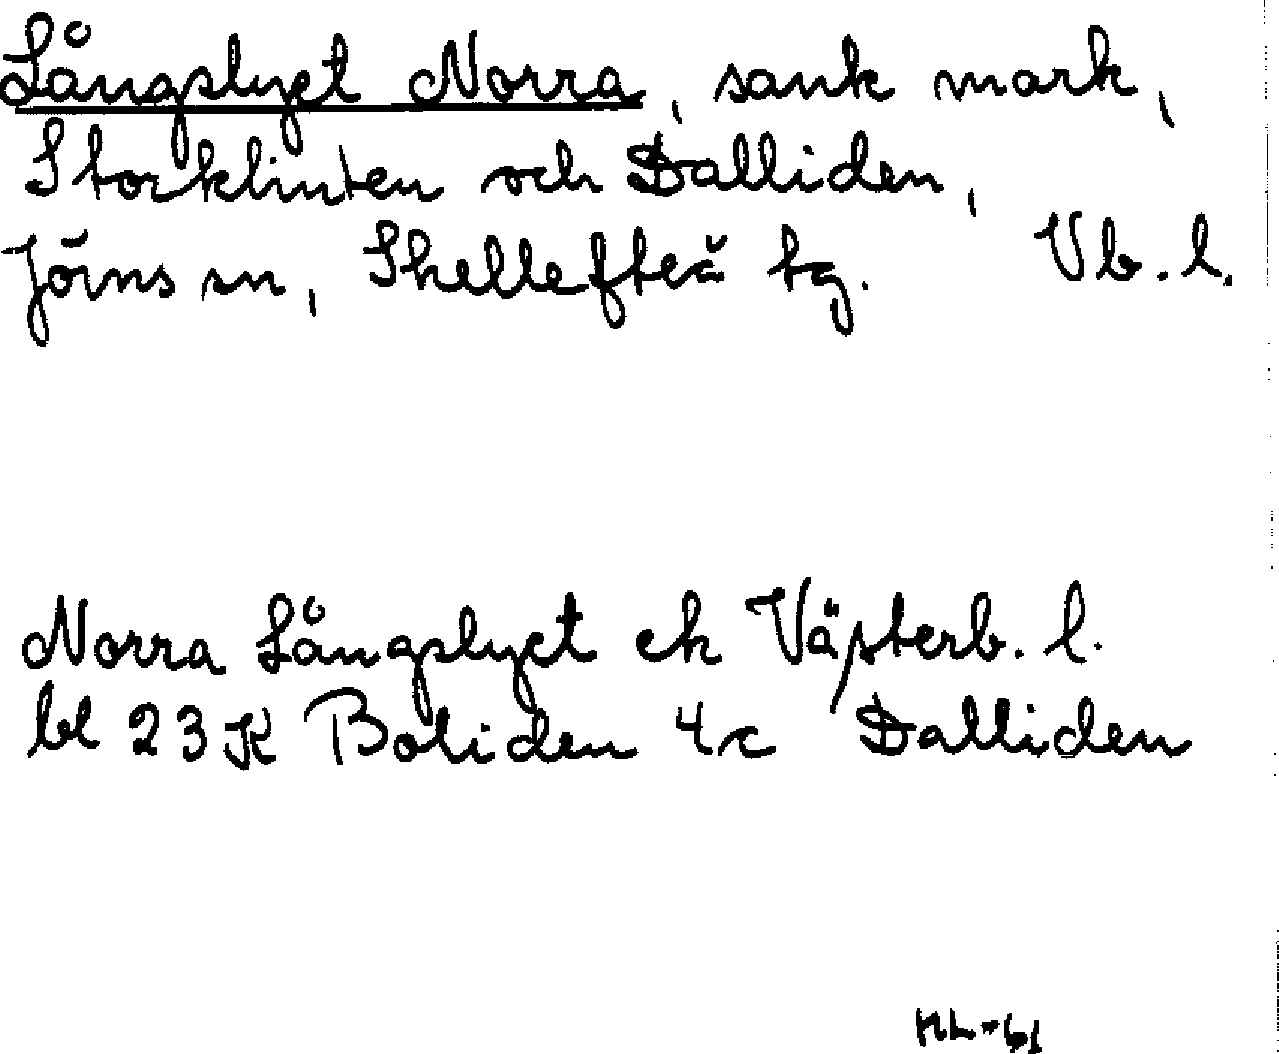 Långslyet Norra, sank mark,
Storklinten och Dalliden,
Jörns sn, Skellefteå tg. Vb. l.
Norra Långslyet ek Västerb. l.
bl 23K Boliden 4c Dalliden